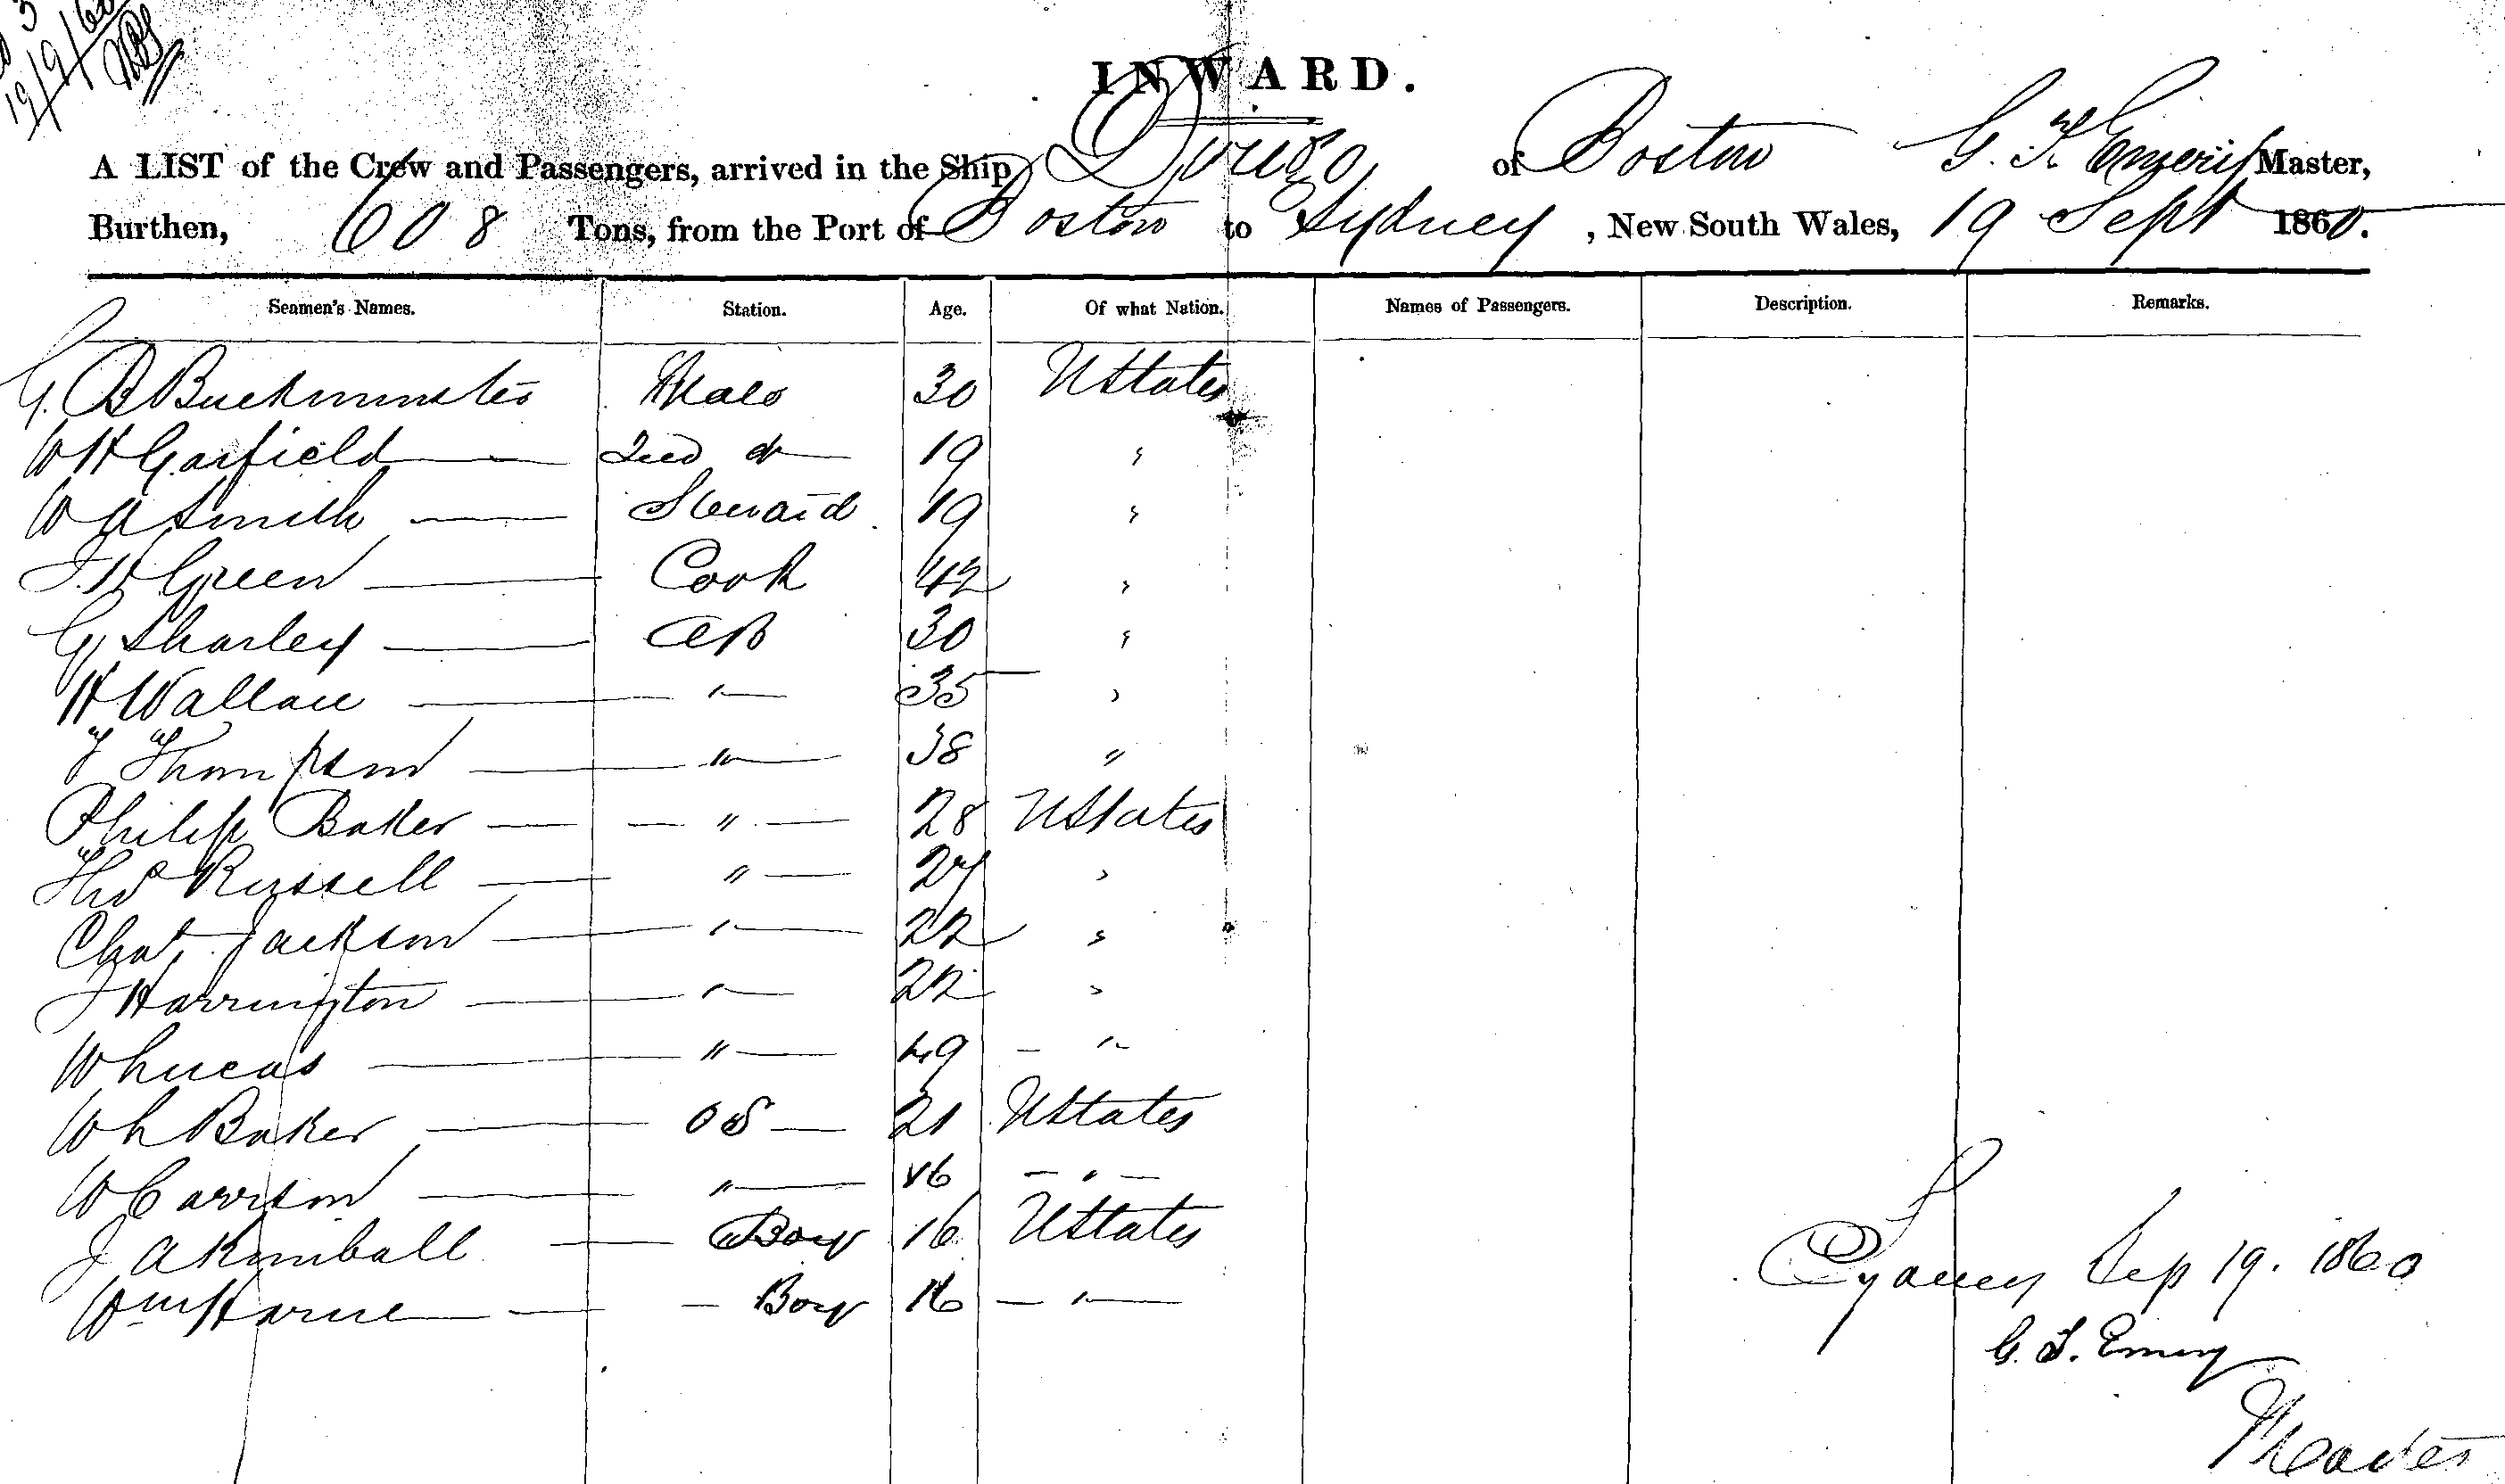 19/9/60
INWARD.
A LIST of the Crew and Passengers, arrived in the Ship of Boston G. F. Emery Master,
Burthen, 608 Tons, from the Port of Boston to Sydney, New South Wales, 19 Sept 1860.
Seamen's Names. Station. Age. Of what Nation. Names of Passengers. Description. Remarks.
G. B Buckminster Mate 30 U States
W H Garfield — 2nd do — 19 "
W A Smith — Steward 19 "
J. W Green — Cook 42 "
G Sharley — AB 30 "
H Wallace — " — 35 "
T Thompson — " — 38 "
Philip Baker — " — 28 U States
Thos Russell — " — 27 "
Chas Jackson — " — 22 "
J Harrington — " — 22 "
W Lucas — " — 49 — "
W L Baker — OS — 21 U States
W Carrson — " — 16 — " —
J A Kimball — Boy 16 U States
Wm Harue — Boy 16 — " —
Sydney Sep 19. 1860
G. F. Emery
Master